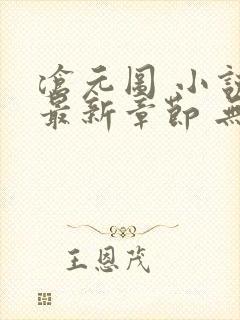 滄元圖 小說
最新章節 無
王恩茂